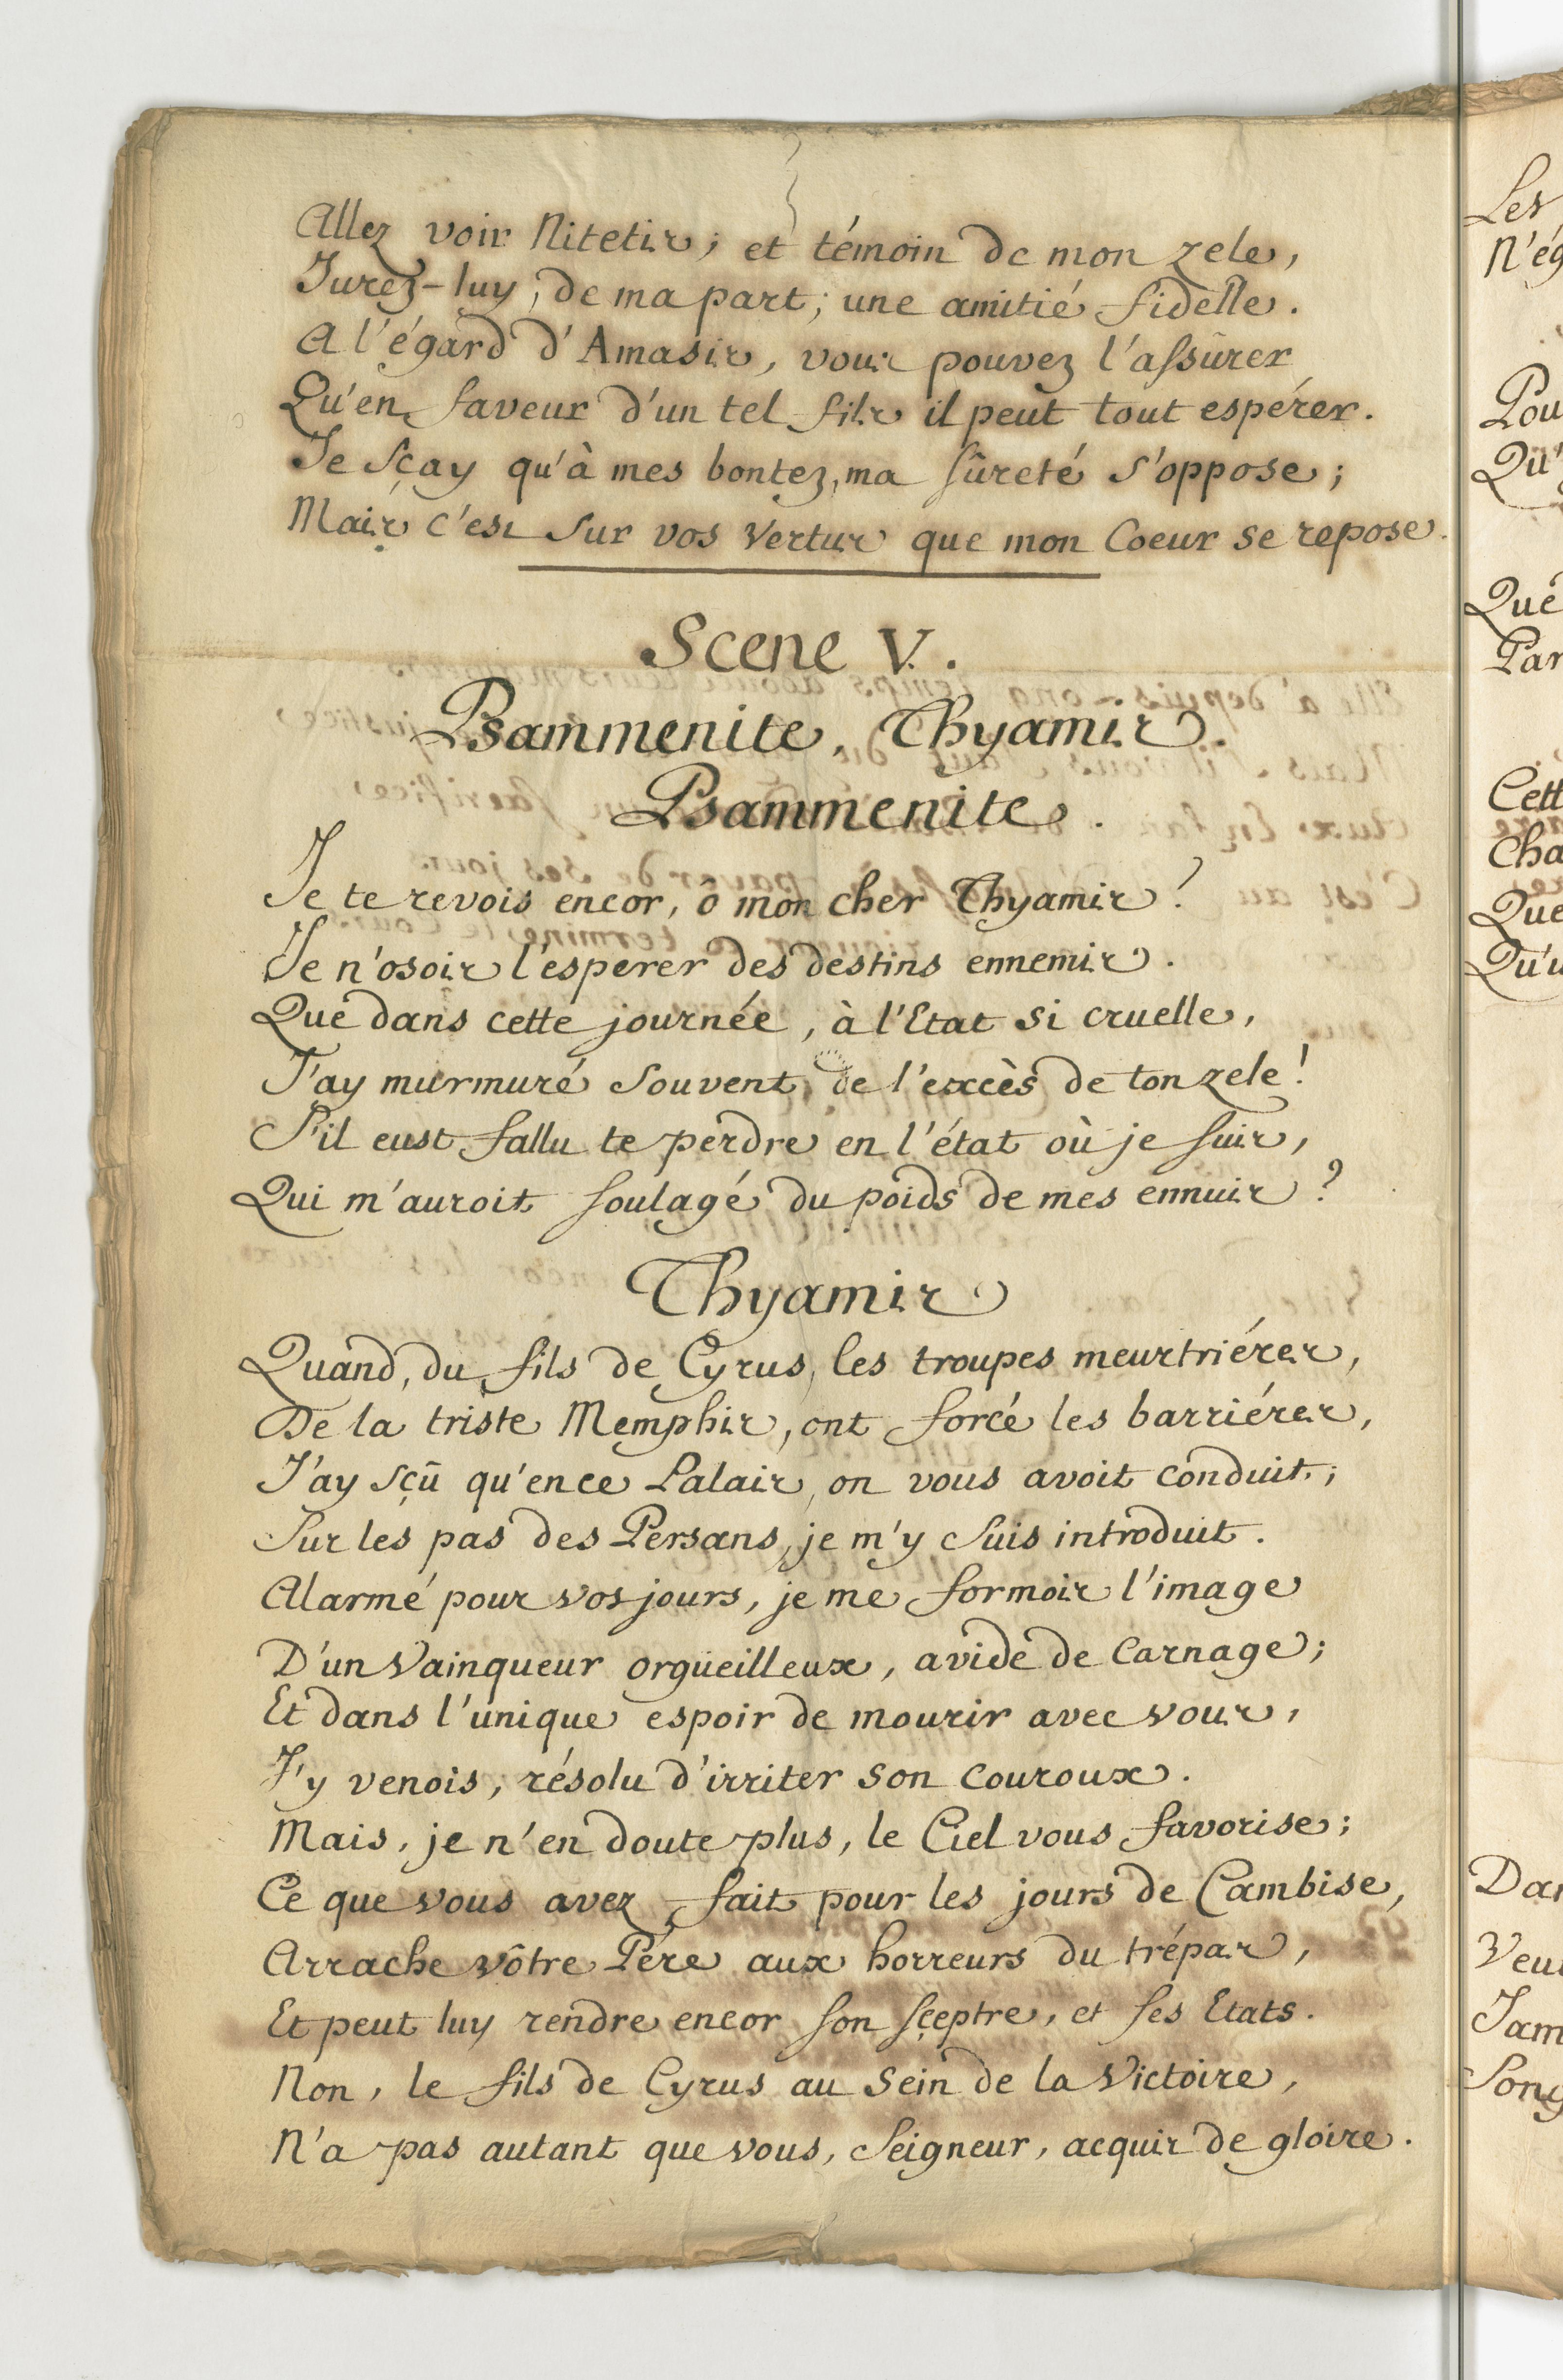 Allez voir Nitetis; et témoin de mon zele,
Jurez-luy, de ma part, une amitié fidelle.
A l'égard d'Amasis, vous pouvez l'assûrer
Qu'en faveur d'un tel fils il peut tout espérer.
Je sçay qu'à mes bontez, ma sûreté s'oppose;
Mais c'est sur vos vertus que mon Coeur se repose.
Scene V.
Psammenite, Thyamis.
Psammenite.
Je te revois encor, ô mon cher Thyamis!
Je n'osois l'esperer des destins ennemis.
Que dans cette journée, à l'Etat si cruelle,
J'ay murmuré souvent, de l'excès de ton zele!
S'il eust fallu te perdre en l'état où je suis,
Qui m'auroit soulagé du poids de mes ennuis?
Thyamis
Quand, du fils de Cyrus, les troupes meurtriéres,
De la triste Memphis, ont forcé les barriéres,
J'ay sçû qu'en ce Palais, on vous avoit conduit;
Sur les pas des Persans, je m'y suis introduit.
Alarmé pour vos jours, je me formois l'image
D'un Vainqueur orgüeilleux, avide de Carnage;
Et dans l'unique espoir de mourir avec vous,
J'y venois, résolu d'irriter son couroux.
Mais, je n'en doute plus, le Ciel vous favorise;
Ce que vous avez fait pour les jours de Cambise,
Arrache vôtre Pére aux horreurs du trépas,
Et peut luy rendre encor son sçeptre, et ses Etats.
Non, le fils de Cyrus au sein de la Victoire,
N'a pas autant que vous, Seigneur, acquis de gloire.
Les
N'ég
Pou
Qu'
Que
Par
Cett
Cha
Que
Qu'u
Dan
Veu
Jam
Song